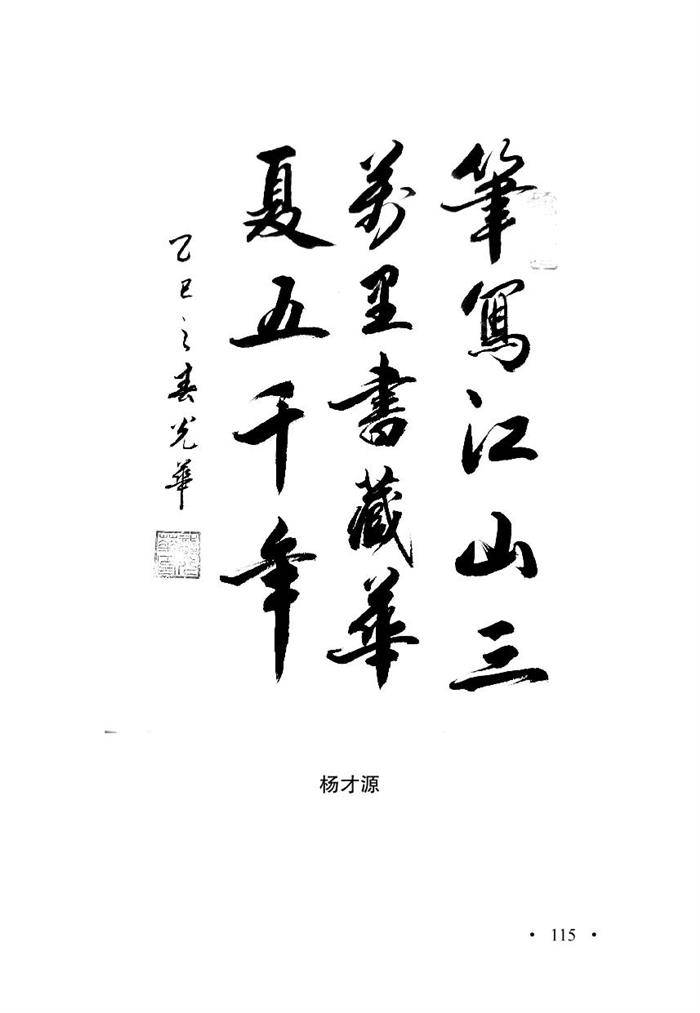 筆寫江山三
萬里書藏華
夏五千年
乙巳之春光華
杨才源
• 115 •